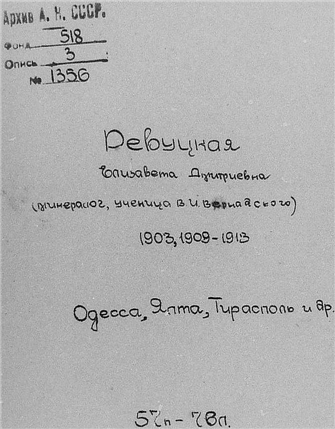 Архив А. Н. СССР.
Фонд 518
Опись 3
№ 1356
Ревуцкая
Елизавета Дмитриевна
(минералог, ученица В.И. Вернадского)
1903, 1909-1913
Одесса, Ялта, Тирасполь и др.
57п - 76п.